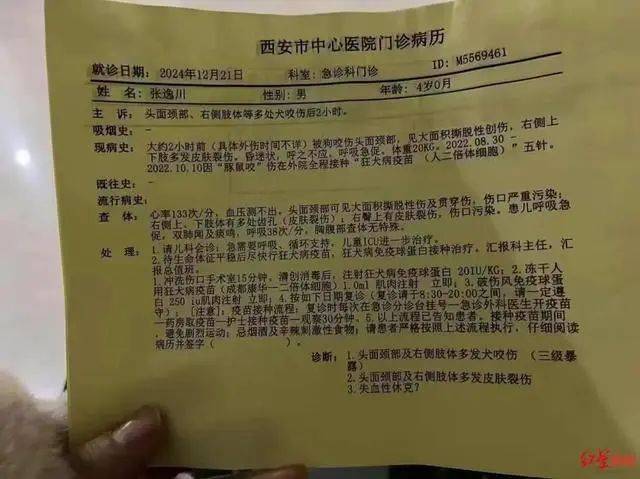 西安市中心医院门诊病历
就诊日期: 2024年12月21日 科室: 急诊科门诊 ID: M5569461
姓 名: 张逸川 性别: 男 年龄: 4岁0月
主 诉: 头面颈部、右侧肢体等多处犬咬伤后2小时。
吸烟史: -
现病史: 大约2小时前（具体外伤时间不详）被狗咬伤头面颈部，见大面积撕脱性创伤，右侧上
下肢多发皮肤裂伤。昏迷状，呼之不应，呼吸急促。体重20KG。2022.08.30 -
2022.10.10因“豚鼠咬”伤在外院全程接种“狂犬病疫苗（人二倍体细胞）”五针。
既往史: -
流行病史:
查 体: 心率133次/分，血压测不出。头面颈部可见大面积撕脱性伤及贯穿伤；伤口严重污染；
右侧上、下肢体有多处齿孔（皮肤裂伤）；右臀上有皮肤裂伤，伤口污染。患儿呼吸急
促，双肺闻及痰鸣，呼吸38次/分，胸腹部查体无特殊。
处 理: 1.请儿科会诊；急需要呼吸、循环支持，儿童ICU进一步治疗。
2.待生命体征平稳后尽快行狂犬病疫苗、狂犬病免疫球蛋白接种治疗。汇报科主任，汇
报总值班。
1.冲洗伤口手术室15分钟，清创消毒后，注射狂犬病免疫球蛋白 20IU/KG; 2.冻干人
用狂犬病疫苗（成都康华—二倍体细胞）1.0ml 肌肉注射 立即；3.破伤风免疫球蛋
白 250 iu肌肉注射 立即；4.按如下日期复诊（复诊请于8:30-20:00之间，请一定遵
守）；[注意]：疫苗接种流程：复诊时每次在急诊分诊台挂号—急诊外科医生开疫苗
—药房取疫苗—护士接种疫苗—观察30分钟。5.以上流程已告知患者。接种疫苗期间
，避免剧烈运动；忌烟酒及辛辣刺激性食物；请患者严格按照上述流程执行，仔细阅读
病历并签字（ ）。
诊断: 1.头面颈部及右侧肢体多发犬咬伤（三级暴
露）
2.头面颈部及右侧肢体多发皮肤裂伤
3.失血性休克?
红星